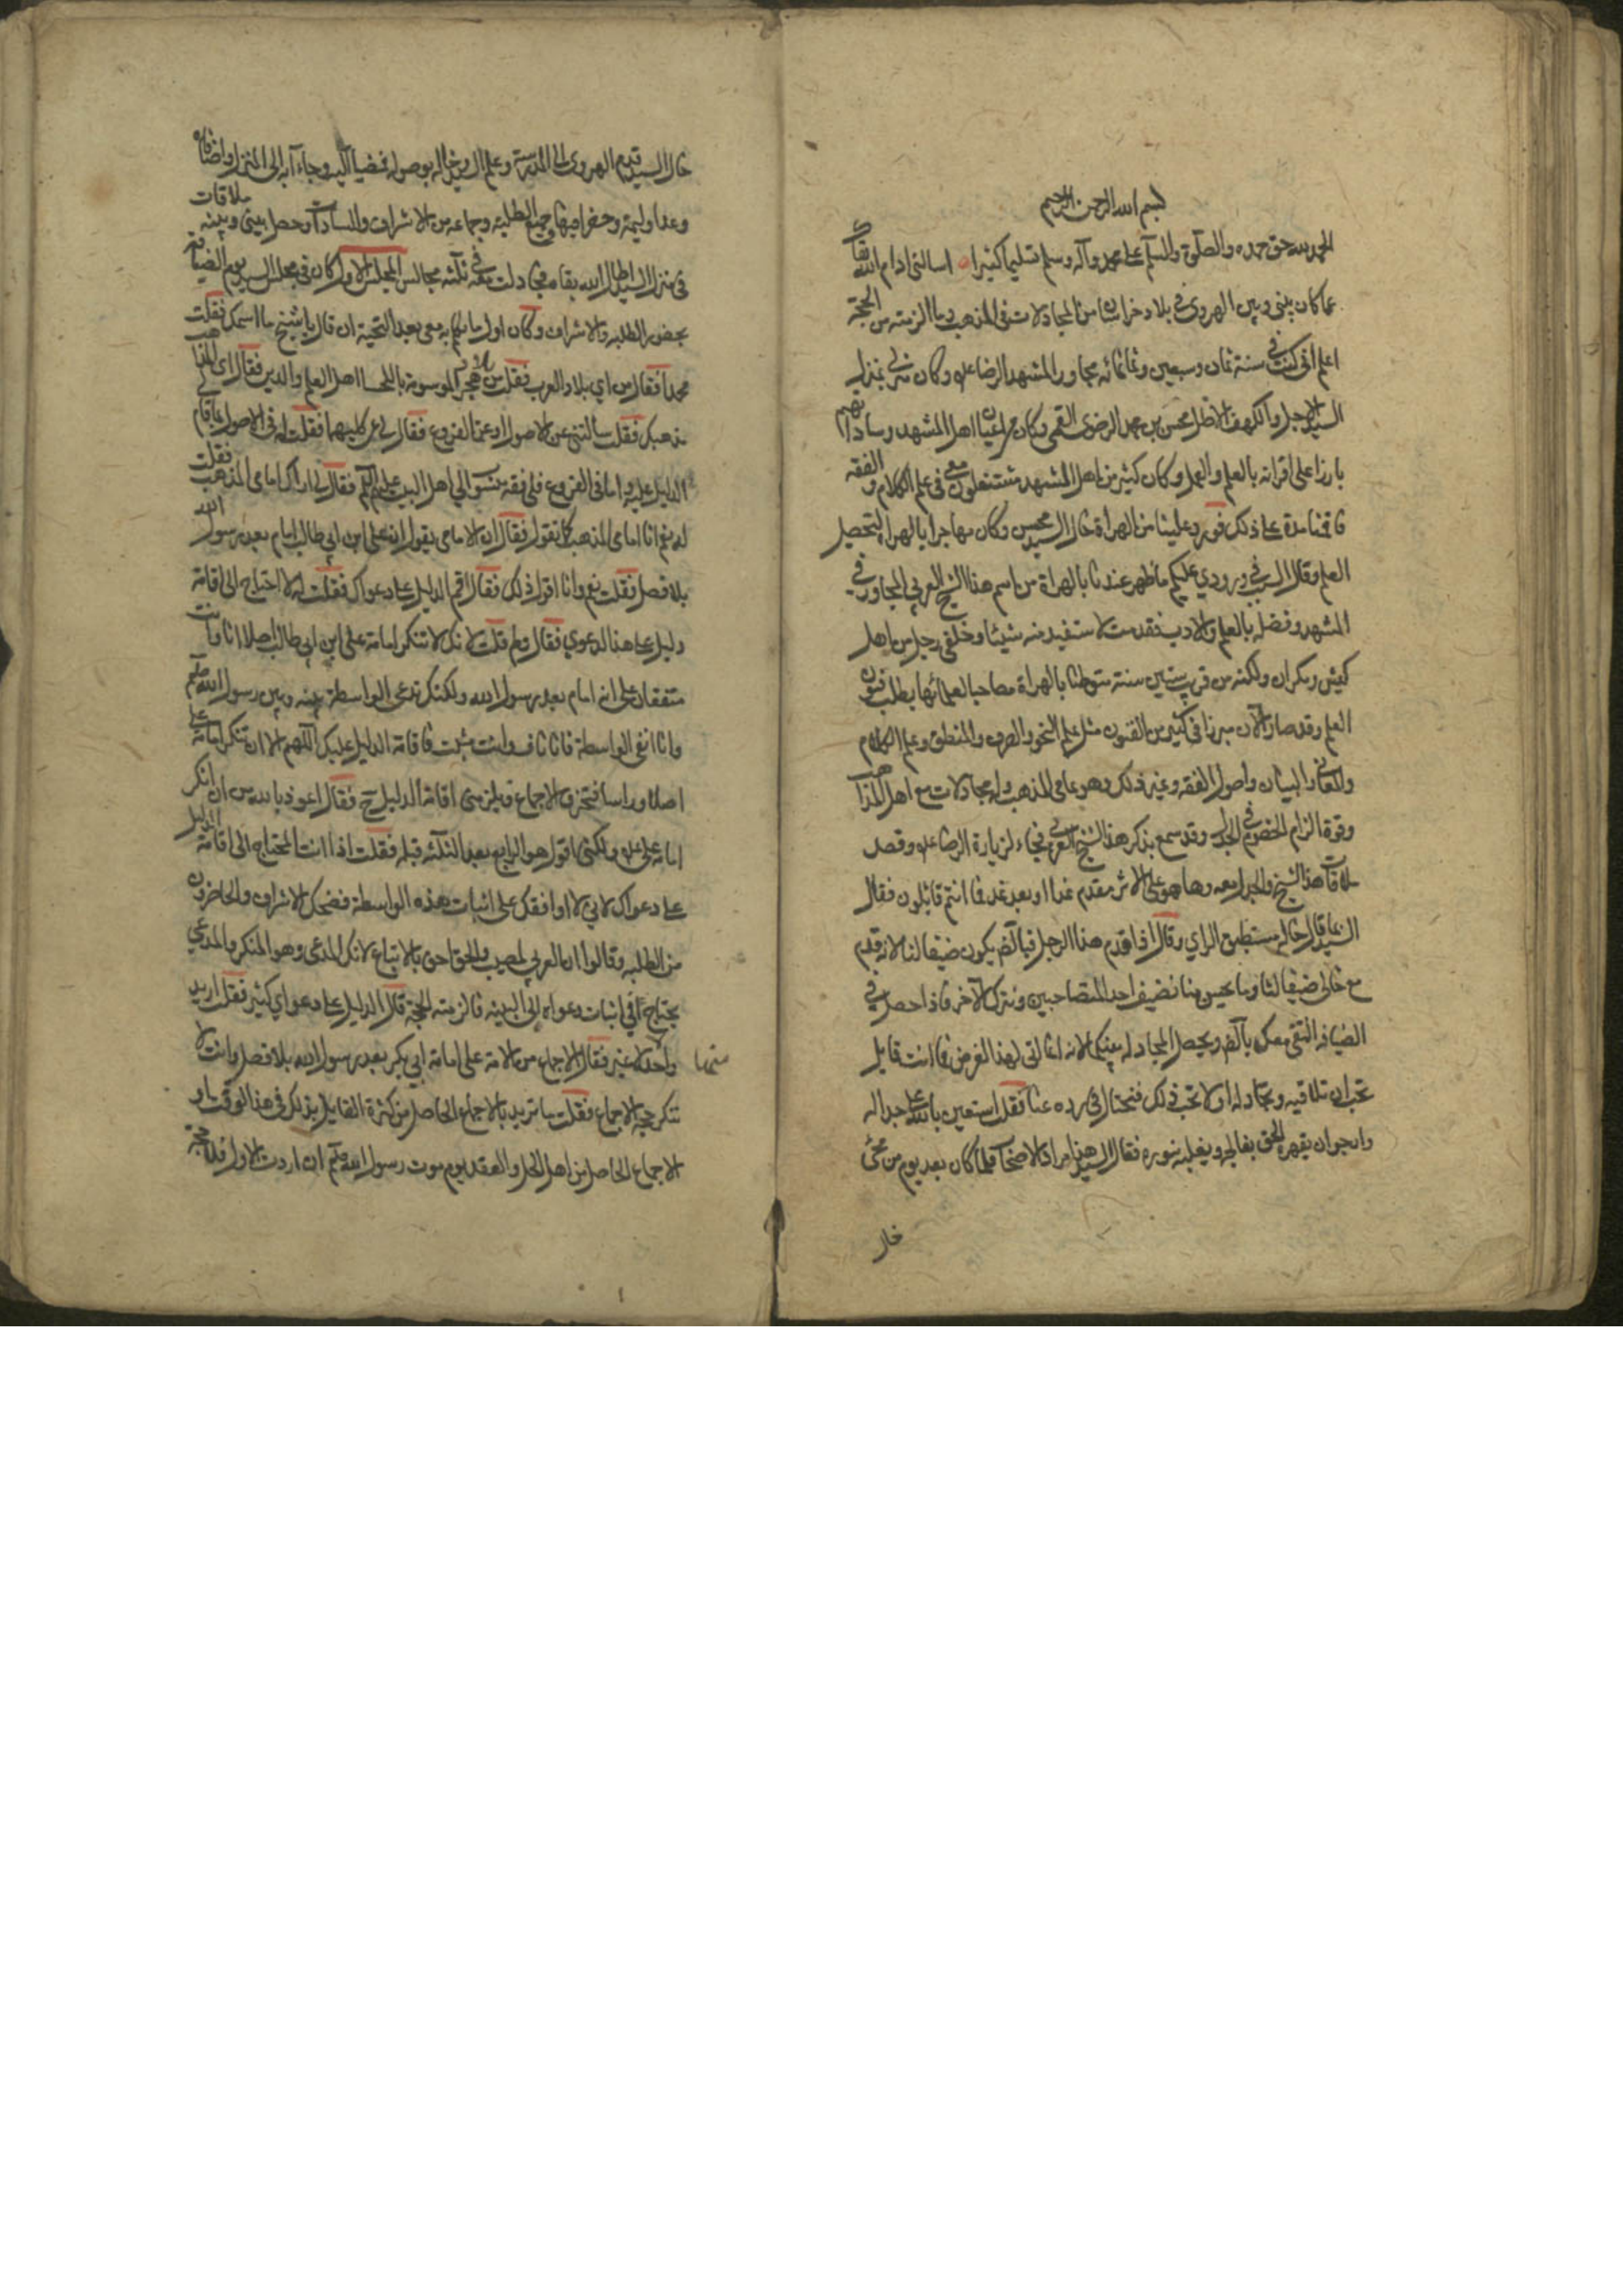 بسم الله الرحمن الرحيم
الحمد لله حق حمده والصلوة والسلام على محمد وآله وسلم تسليما كثيرا اسالتنى ادام الله بقاك
عما كان بينى وبين الهروى فى بلاد خراسان من المجادلات فى المذهب وما الزمته من الحجة
اعلم انى كنت فى سنة ثمان وسبعين وثمانمائه مجاور المشهد الرضا ع وكان منزلى بمنزل
السيد الاجل والكهف الاظل محسن بن محمد الرضوى القمى وكان من اعيان اهل المشهد وساداتهم
بارزا على اقرانه بالعلم والعمل وكان كثير من اهل المشهد مشتغلون معى فى علم الكلام والفقه
فاقمنا مدة على ذلك فورد علينا من الهراة خال السيد محسن وكان مهاجرا بالهراة لتحصيل
العلم وقال السبب فى ورودي عليكم ما ظهر عندنا بالهراة من اسم هذا الشيخ العربي المجاور فى
المشهد وفضله بالعلم والادب فقدمت لاستفيد منه شيئا وخلفى رجل من اهل
كيش ومكران ولكنه من قريب ستين سنة متوطنا بالهراة مصاحبا لعلمائها يطلب فنون
العلم وقد صار الآن مبرزا فى كثير من الفنون مثل علم النحو والصرف والمنطق وعلم الكلام
والمعانى والبيان واصول الفقه وغير ذلك وهو عامى المذهب وله مجادلات مع اهل المذاهب
وقوة الزام الخصوم فى الجدل وقد سمع بذكر هذا الشيخ العربي فجاء لزيارة الرضا ع وقصد
ملاقات هذا الشيخ والجدل معه وها هو على الاثر مقدم غدا او بعد غد فما انتم قائلون فقال
السيد ما قال خاله مستطبق الراي وقال اذا قدم هذا الرجل فبالضم يكون ضيفا لنا لانه قدم
مع خالى ضيفا لنا وما يحسن منا نضيف احد المتصاحبين ونترك الآخر فاذا حصل فى
الضيافه التقى معك بالضم ويحصل المجادله بينكما لانه انما اتى لهذا الغرض فما انت قايل
تحب ان تلاقيه وتجادله او لا تحب ذلك فنحتال فى رده عنا فقلت استعين بالله على جداله
وارجو ان يقهره الحق بفالجه ويغلبه بنوره فقال السيد هذا مراد الاصحاب فلما كان بعد يوم من مجئ
خال
خال السيد قدم الهروى الى المدرسة وعلم السيد وخاله بوصوله فمضيا اليه وجاءآ به الى المنزل واضافاه
وعملا وليمة وحضر فيها جميع الطلبة وجماعه من الاشراف والسادات وحصل بينى وبينه ملاقات
فى منزل السيد اطال الله بقاه فجادلت معه فى ثلثه مجالس المجلس الاول كان فى مجلس السيد يوم الضيافه
بحضور الطلبه والاشراف وكان اول ما تكلم به معى بعد التحية ان قال يا شيخ ما اسمك فقلت
محمد فقال من اي بلاد العرب فقلت من بلاد هجر الموسومة بالاحسا اهل العلم والدين فقال اى المذاهب
مذهبك فقلت سالتنى عن الاصول او عن الفروع فقال لى عن كليهما فقلت له فى الاصول ما قام لى
الدليل عليه واما فى الفروع فلى فقه منسوب الى اهل البيت عليهم السلم فقال لى اراك امامى المذهب فقلت
له نعم انا امامى المذهب فما تقول فقال ان الامامى يقول ان على ابن ابي طالب امام بعد رسول الله
بلا فصل فقلت نعم وانا اقول ذلك فقال اقم الدليل على دعواك فقلت له لا احتاج الى اقامة
دليل على هذا الدعوي فقال ولم قلت لانك لا تنكر امامة على ابن ابي طالب اصلا انا وانت
متفقان على انه امام بعد رسول الله ولكنك تدعى الواسطة بينه وبين رسول الله صلعم
وانا انفى الواسطة فانا ناف وانت مثبت فاقامة الدليل عليك اللهم الا ان تنكر امامة على
اصلا وراسا فتخرق الاجماع فيلزمنى اقامة الدليل ح فقال اعوذ بالله من ان انكر
امامة على ع ولكنى اقول هو الرابع بعد الثلثه قبله فقلت اذا انت المحتاج الى اقامة الدليل
على دعواك لاني لا اوافقك على اثبات هذه الواسطة فضحك الاشراف والحاضرون
من الطلبه وقالوا ان العربي لمصيب والحق احق بالاتباع لانك المدعى وهو المنكر والمدعي
يحتاج فى اثبات دعواه الى البينه فالزمته الحجة قال الدليل على دعواي كثير فقلت اريد
منها واحدا لا غير فقال الاجماع من الامة على امامة ابي بكر بعد رسول الله بلا فصل وانت لا
تنكر حجية الاجماع فقلت ما تريد بالاجماع الحاصل من كثرة القايل بذلك فى هذا الوقت او
الاجماع الحاصل من اهل الحل والعقد يوم موت رسول الله صلعم ان اردت الاول فلا حجة